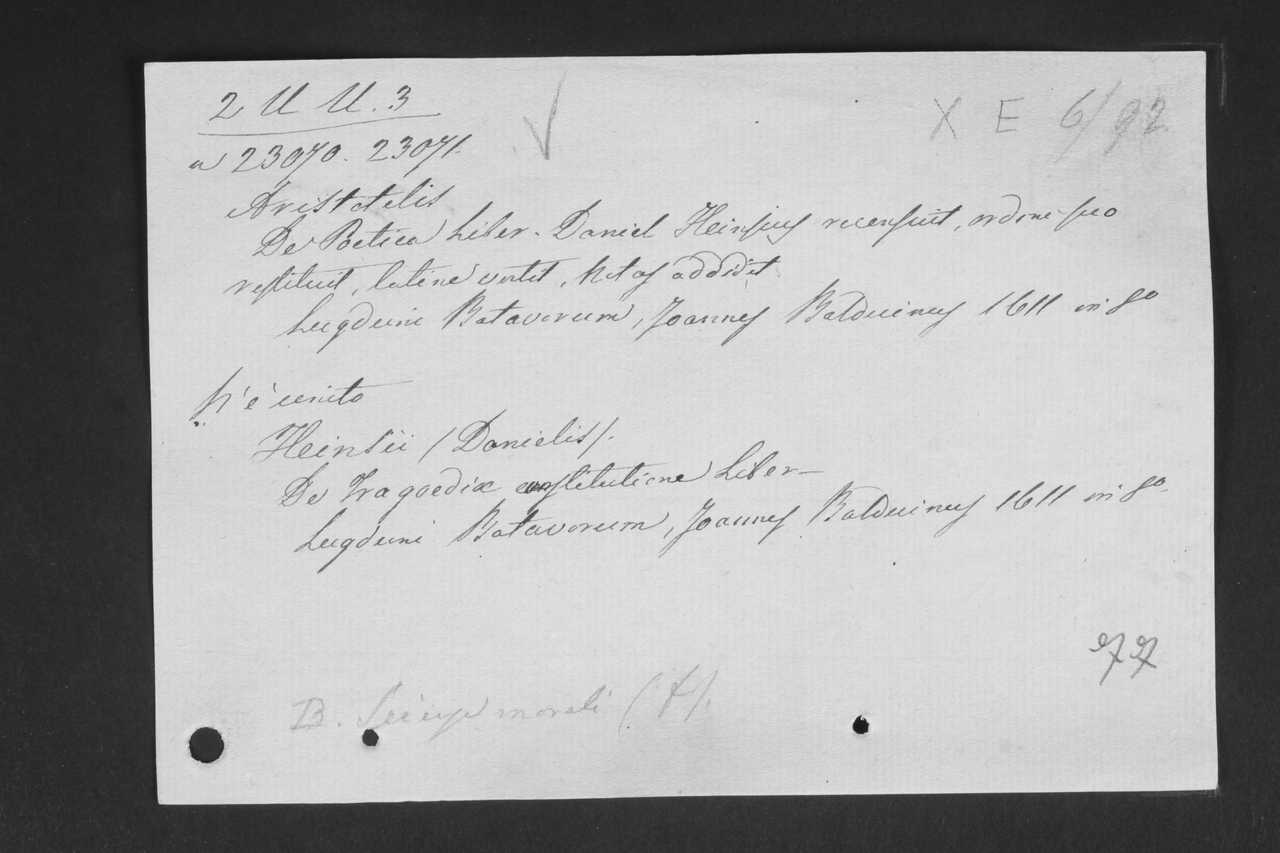 2 U U. 3
X E 6/92
a 23070. 23071.
Aristotelis
De Poetica Liber. Daniel Heinsius recensuit, ordini suo
restituit, latine vertit, Notas addidit
Lugduni Batavorum, Joannes Balduinus 1611 in 8o
V'è unito
Heinsii (Danielis).
De Tragoediae constitutione Liber—
Lugduni Batavorum, Joannes Balduinus 1611 in 8o.
77
B. Scienze morali (f).